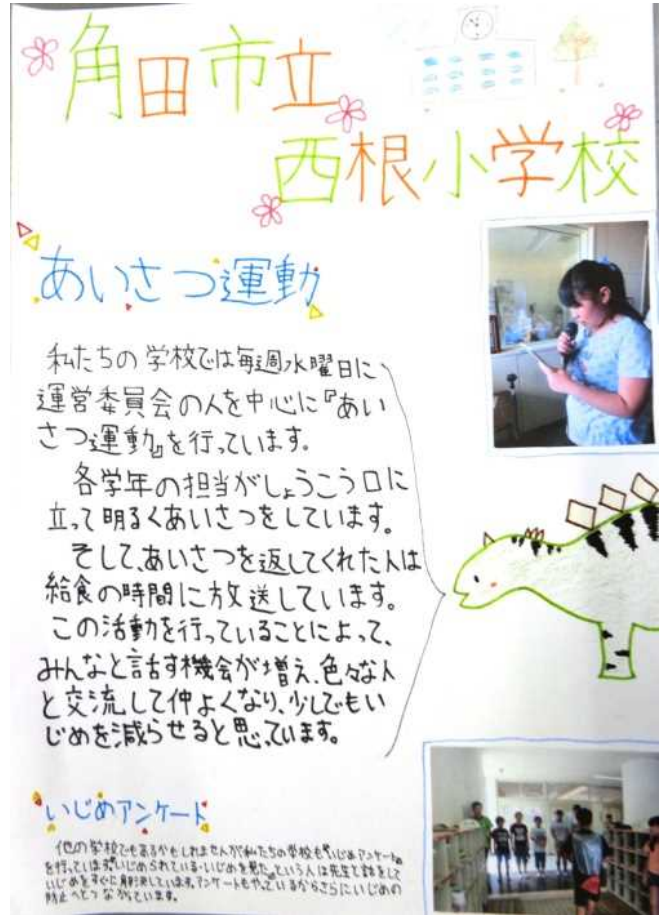 角田市立
西根小学校
あいさつ運動
私たちの学校では毎週水曜日に
運営委員会の人を中心に『あい
さつ運動』を行っています。
各学年の担当がしょうこう口に
立って明るくあいさつをしています。
そして、あいさつを返してくれた人は
給食の時間に放送しています。
この活動を行っていることによって、
みんなと話す機会が増え、色々な人
と交流して仲よくなり、少しでもい
じめを減らせると思っています。
いじめアンケート
他の学校でもあるかもしれませんが私たちの学校も"いじめアンケート"
を行っています。"いじめられている・いじめを見た"という人は先生と話をして
いじめをすぐに解決しています。アンケートもやっているからさらにいじめの
防止へとつながっています。